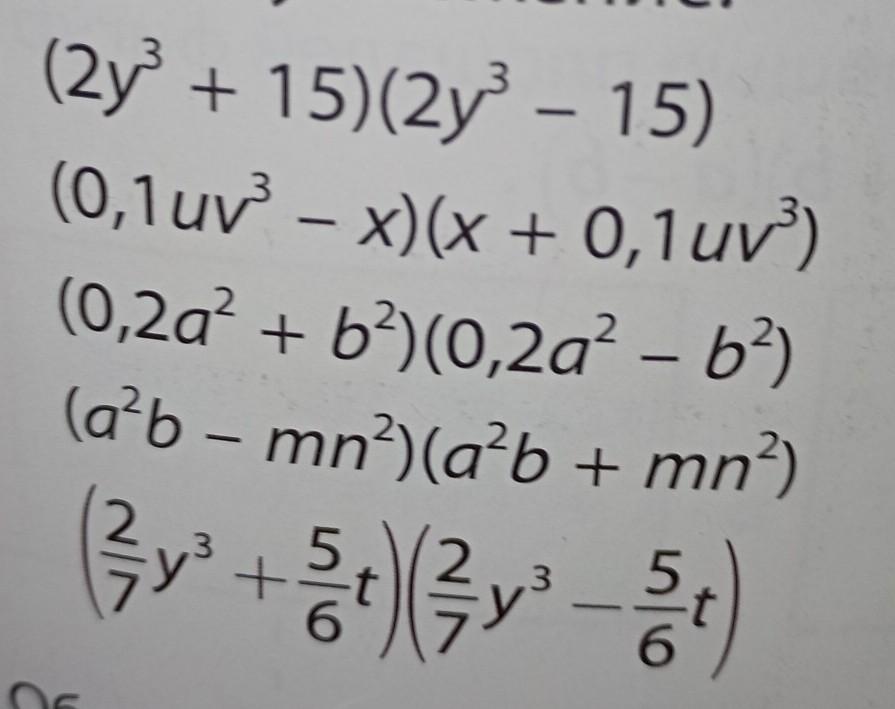 (2y³ + 15)(2y³ – 15)
(0,1uv³ – x)(x + 0,1uv³)
(0,2a² + b²)(0,2a² – b²)
(a²b – mn²)(a²b + mn²)
(2/7 y³ + 5/6 t)(2/7 y³ – 5/6 t)